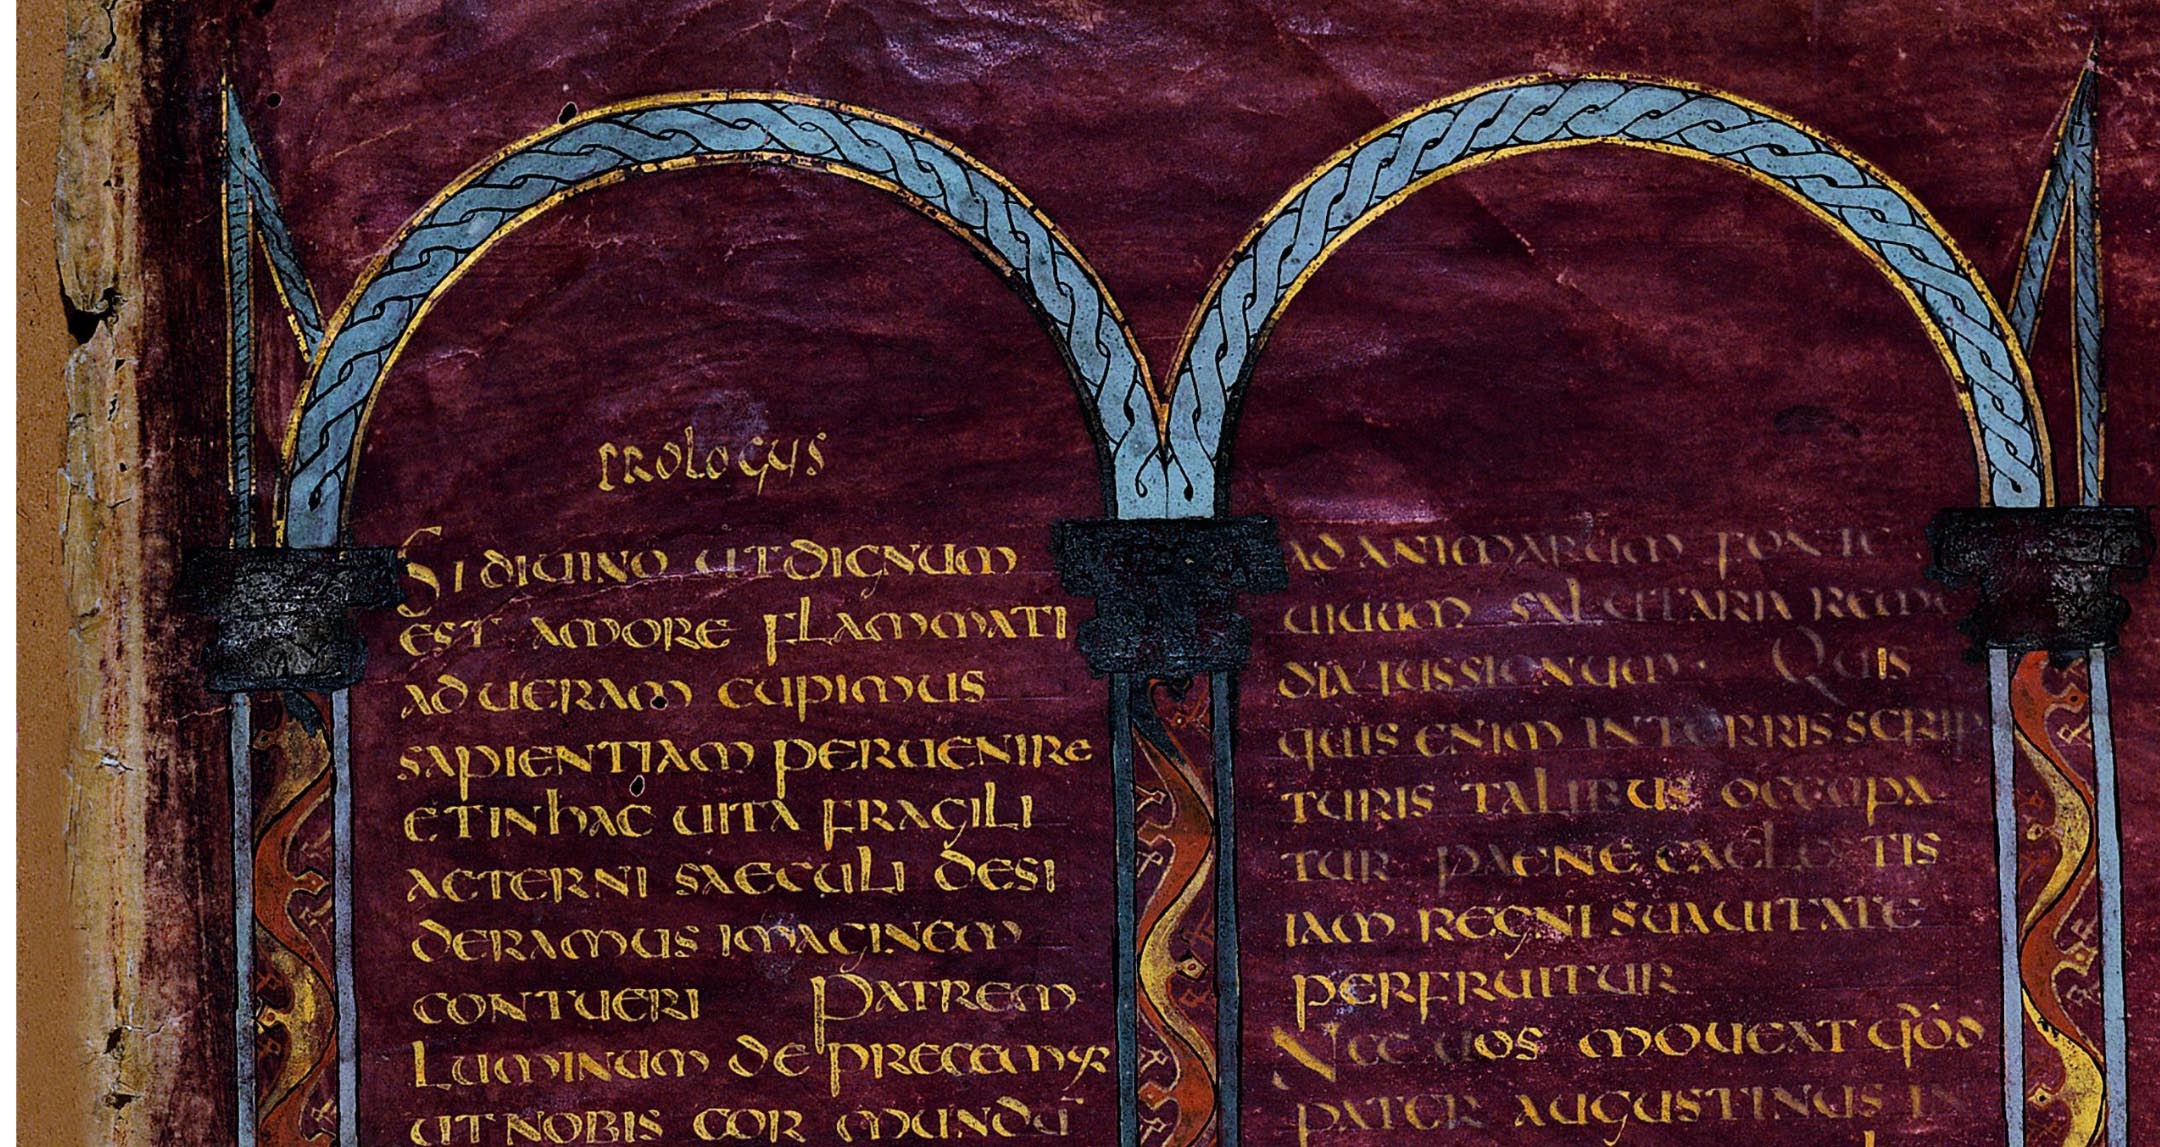 PROLOGUS
SI DIUINO UT DIGNUM
EST AMORE FLAMMATI
AD UERAM CUPIMUS
SAPIENTIAM PERUENIRE
ET IN HAC UITA FRAGILI
AETERNI SAECULI DESI
DERAMUS IMAGINEM
CONTUERI PATREM
LUMINUM DE PRECEMUR
UT NOBIS COR MUNDŪ
AD ANIMARUM FONTE
UIUUM SALUTARIA REME
DIA IUSSIONUM· QUIS
QUIS ENIM IN TERRIS SCRIP
TURIS TALIBUS OCCUPA
TUR PAENE CAELESTIS
IAM REGNI SUAUITATE
PERFRUITUR
NEC UOS MOUEAT QỏD
PATER AUGUSTINUS IN